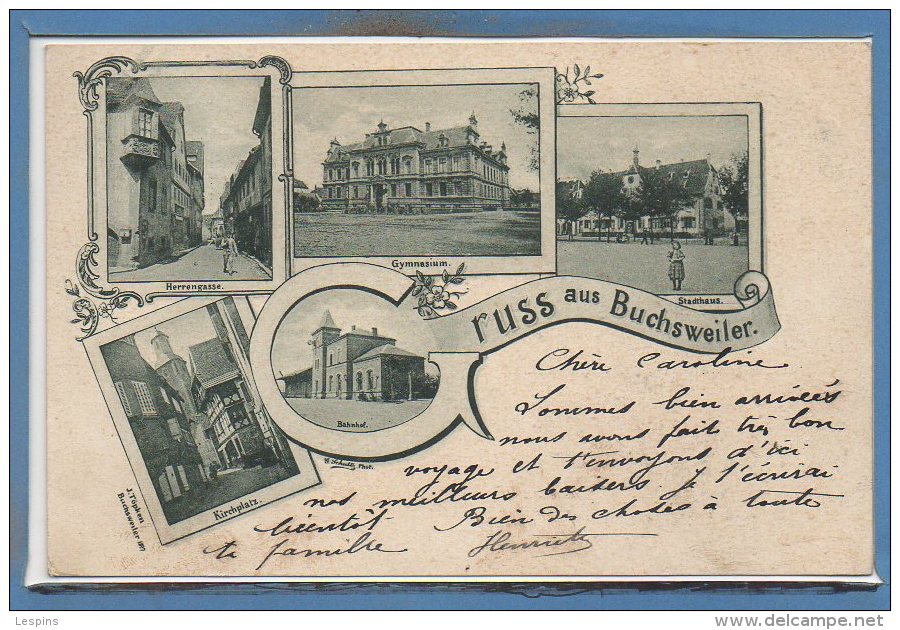 Herrengasse.
Gymnasium.
Stadthaus.
Gruss aus Buchsweiler.
Bahnhof.
Phot.
Kirchplatz.
J. Töpken
Buchsweiler 1897
Chère Caroline
Sommes bien arrivées
nous avons fait très bon
voyage et t'envoyons d'ici
nos meilleurs baisers. Je t'écrirai
bientôt Bien des choses à toute
ta famille Henriette
Lespins
www.delcampe.net